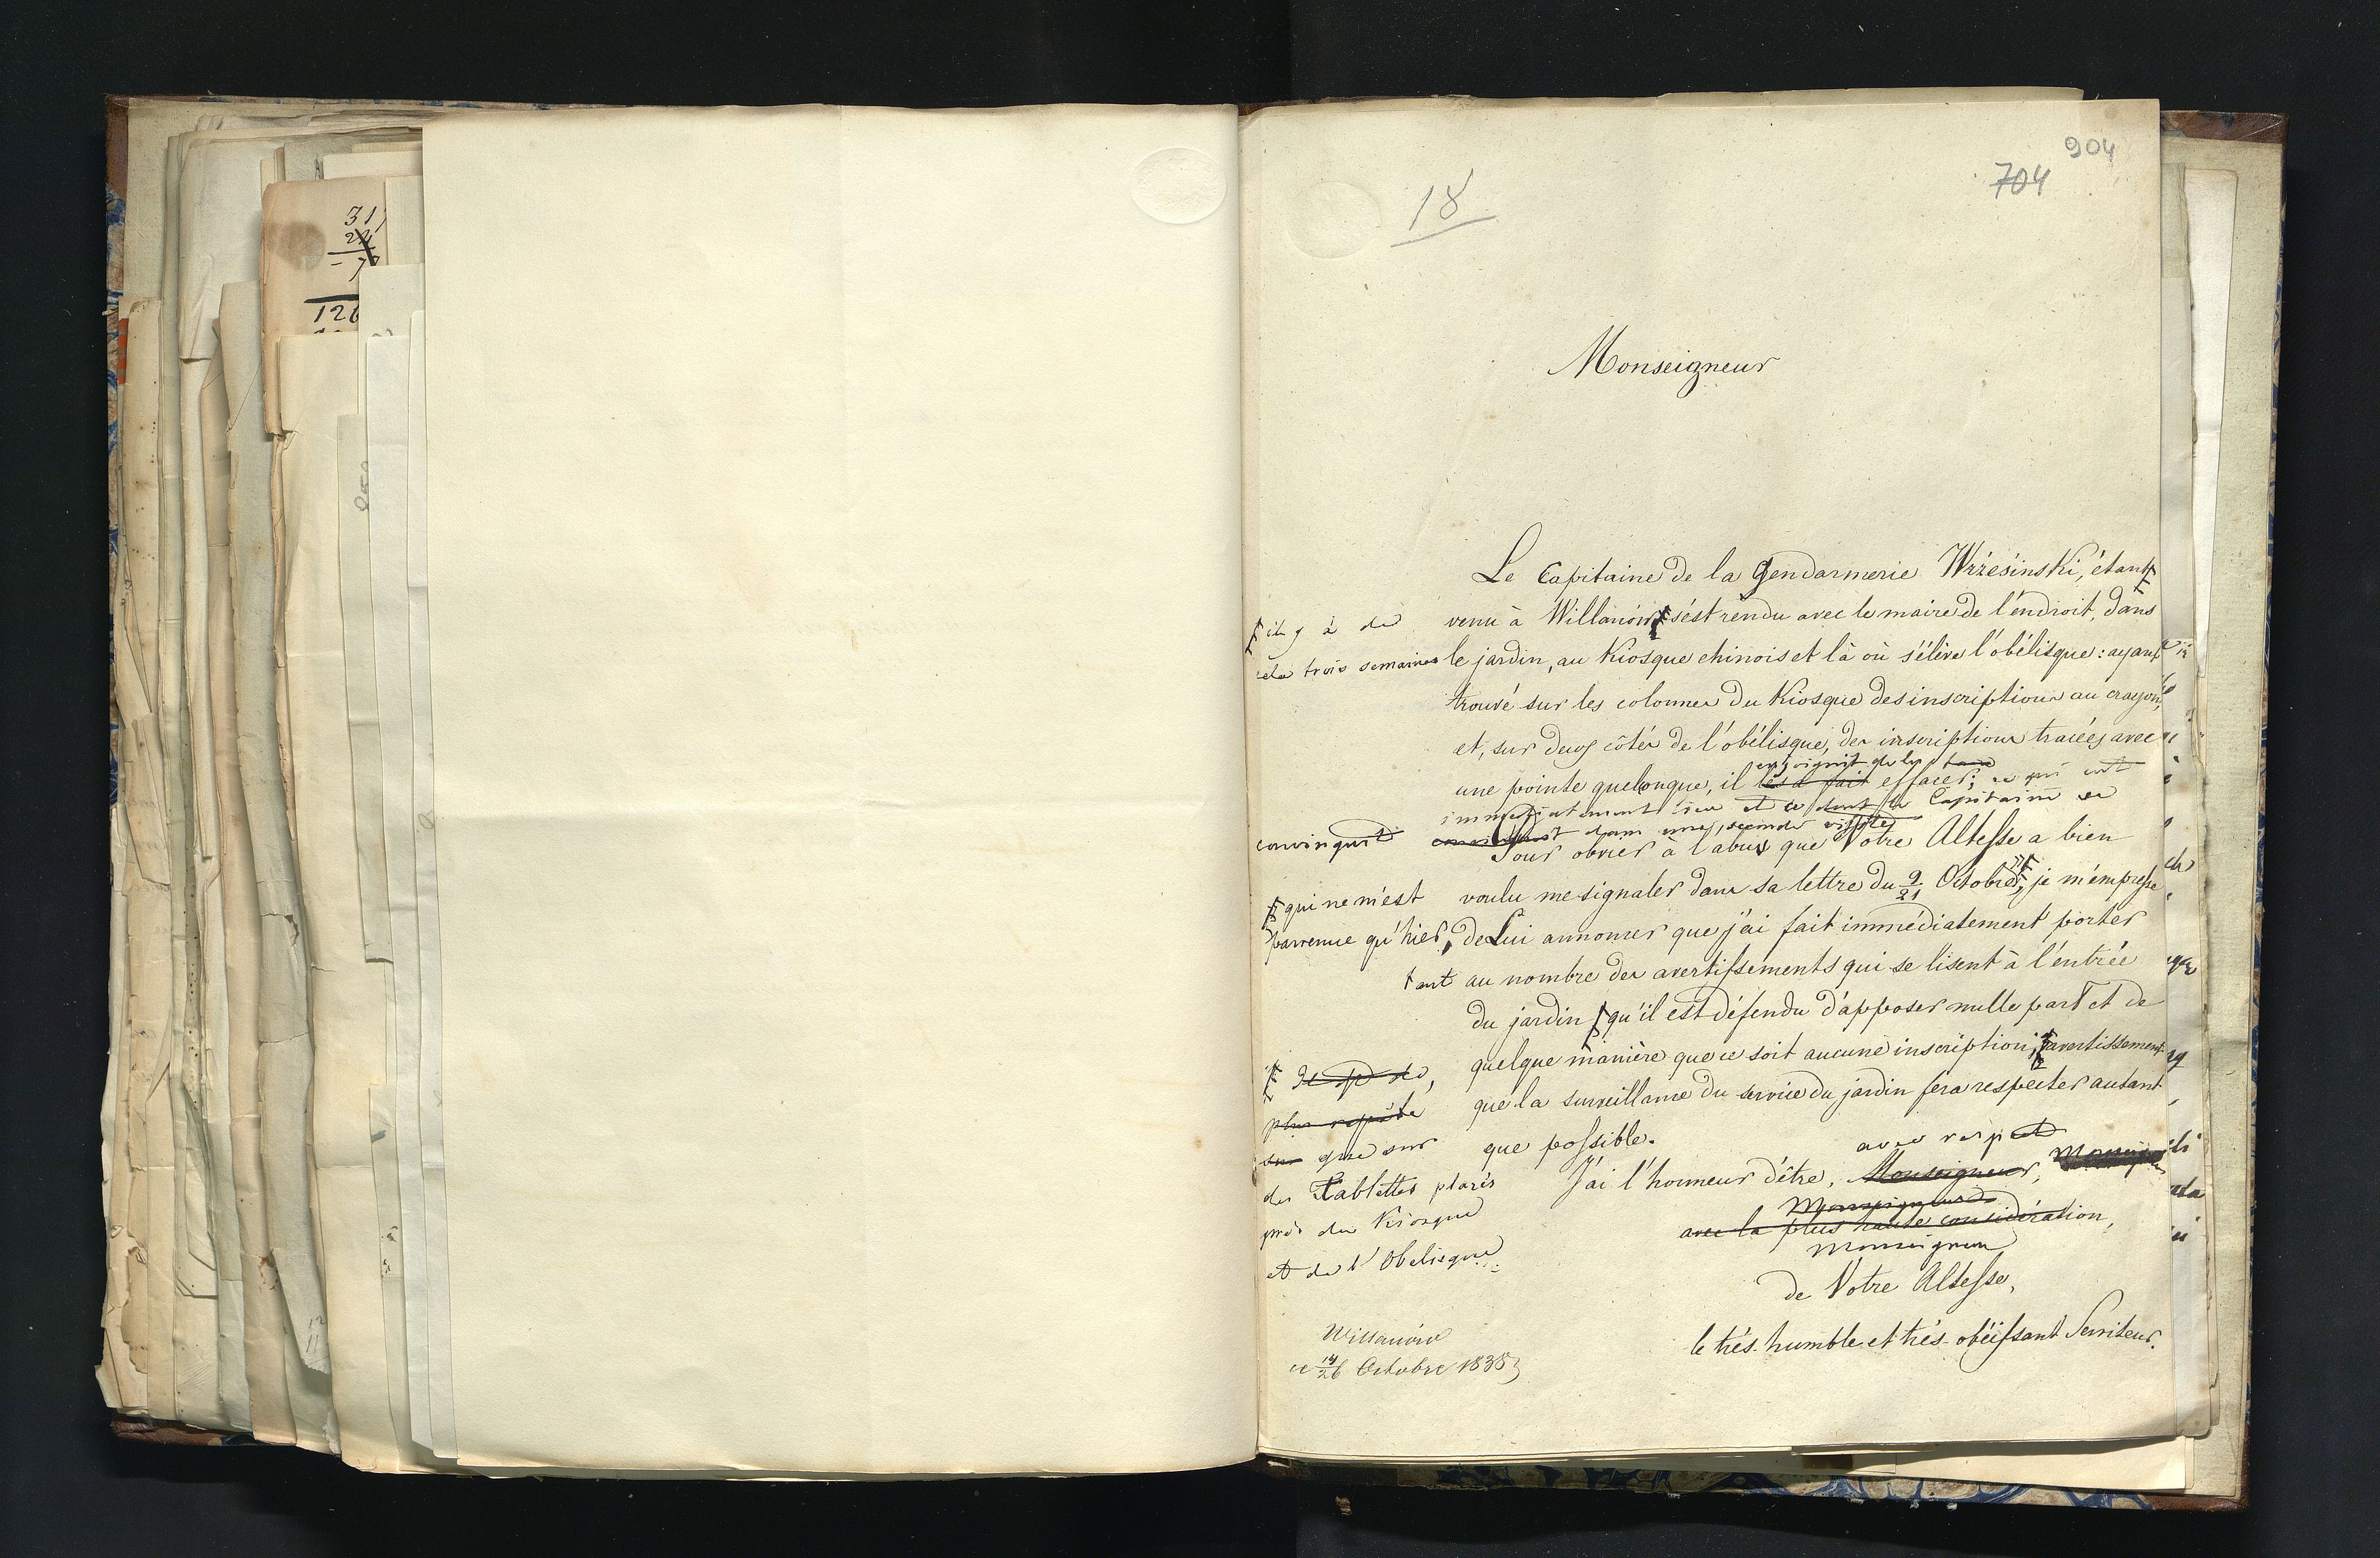 317
22
- 7
126
904
704
18
Monseigneur
Le Capitaine de la Gendarmerie Wrześinski, étant
venu à Willanów s'est rendu avec le maire de l'endroit, dans
il y a de
cela trois semaines
le jardin, au Kiosque chinois et là où s'élève l'obélisque: ayant
trouvé sur les colonnes du Kiosque des inscriptions au crayon,
et, sur deux côtés de l'obélisque, des inscriptions tracées avec
enjoignit de les
une pointe quelconque, il les a fait effacer; ce qui eut
immédiatement lieu et ce dont le Capitaine se
convinquit
dans une seconde visite
Pour obvier à l'abus que Votre Altesse a bien
voulu me signaler dans sa lettre du 9/21 Octobre, je m'empresse
qui ne m'est
parvenue qu'hier,
de Lui annoncer que j'ai fait immédiatement porter
tant au nombre des avertissements qui se lisent à l'entrée
du jardin qu'il est défendu d'apposer nulle part et de
quelque manière que ce soit aucune inscription; avertissement
que la surveillance du service du jardin fera respecter autant
que possible.
que sur
des Tablettes placés
près du Kiosque
et de l'Obelisque
avec respect
J'ai l'honneur d'être, Monseigneur,
Monseigneur
avec la plus haute considération,
Monseigneur
de Votre Altesse,
le très-humble et très-obéissant Serviteur.
Willanów
ce 14/26 Octobre 1838